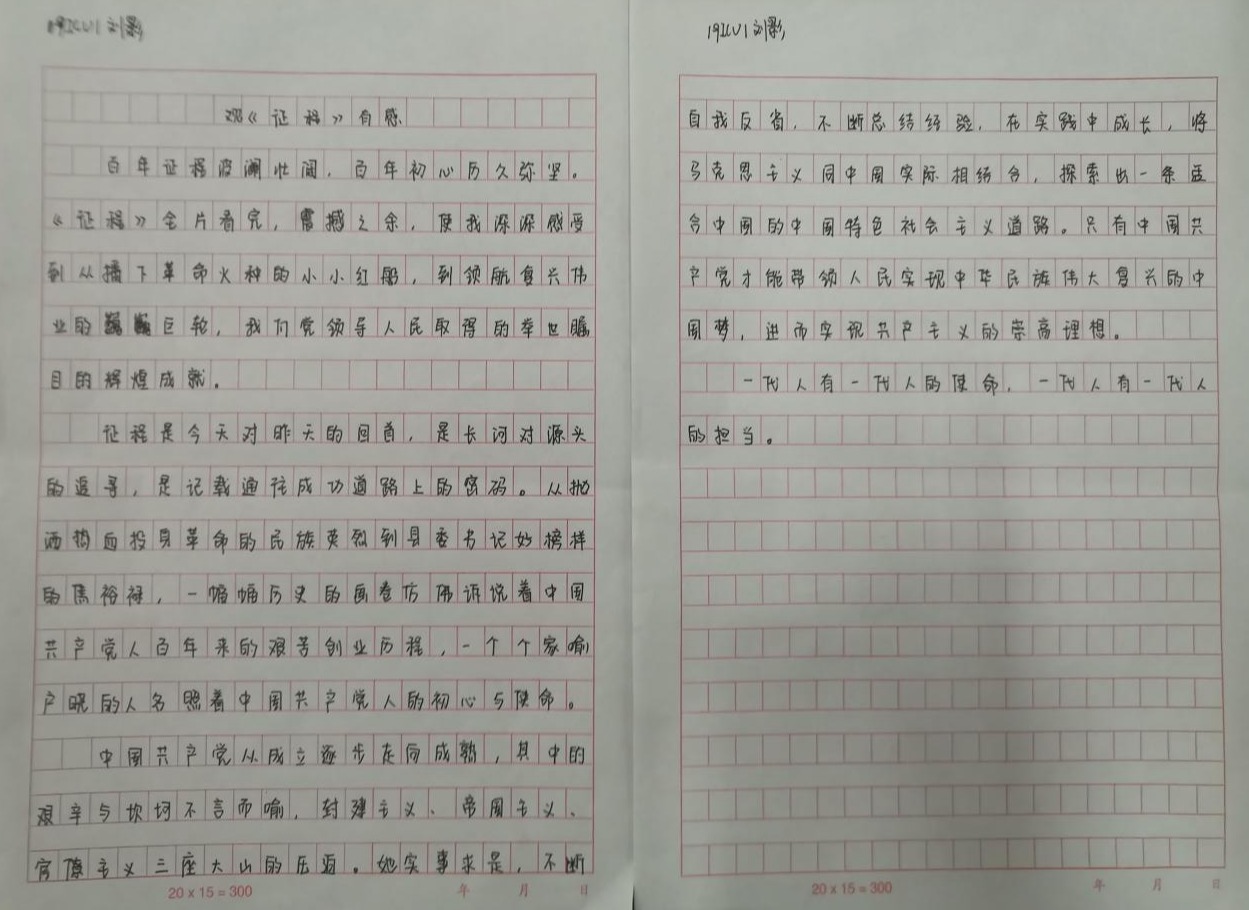 19ICU1 刘影
观《征程》有感
百年征程波澜壮阔，百年初心历久弥坚。
《征程》全片看完，震撼之余，使我深深感受
到从播下革命火种的小小红船，到领航复兴伟
业的巍巍巨轮，我们党领导人民取得的举世瞩
目的辉煌成就。
征程是今天对昨天的回首，是长河对源头
的追寻，是记载通往成功道路上的密码。从抛
洒热血投身革命的民族英烈到县委书记好榜样
的焦裕禄，一幅幅历史的画卷仿佛诉说着中国
共产党人百年来的艰苦创业历程，一个个家喻
户晓的人名照着中国共产党人的初心与使命。
中国共产党从成立逐步走向成熟，其中的
艰辛与坎坷不言而喻，封建主义、帝国主义、
官僚主义三座大山的压迫。她实事求是，不断
19ICU1 刘影
自我反省，不断总结经验，在实践中成长，将
马克思主义同中国实际相结合，探索出一条适
合中国的中国特色社会主义道路。只有中国共
产党才能带领人民实现中华民族伟大复兴的中
国梦，进而实现共产主义的崇高理想。
一代人有一代人的使命，一代人有一代人
的担当。
20×15=300 年 月 日
20×15=300 年 月 日